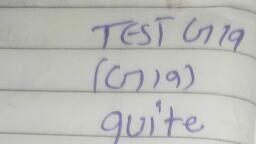 TEST G19
(G19)
quite